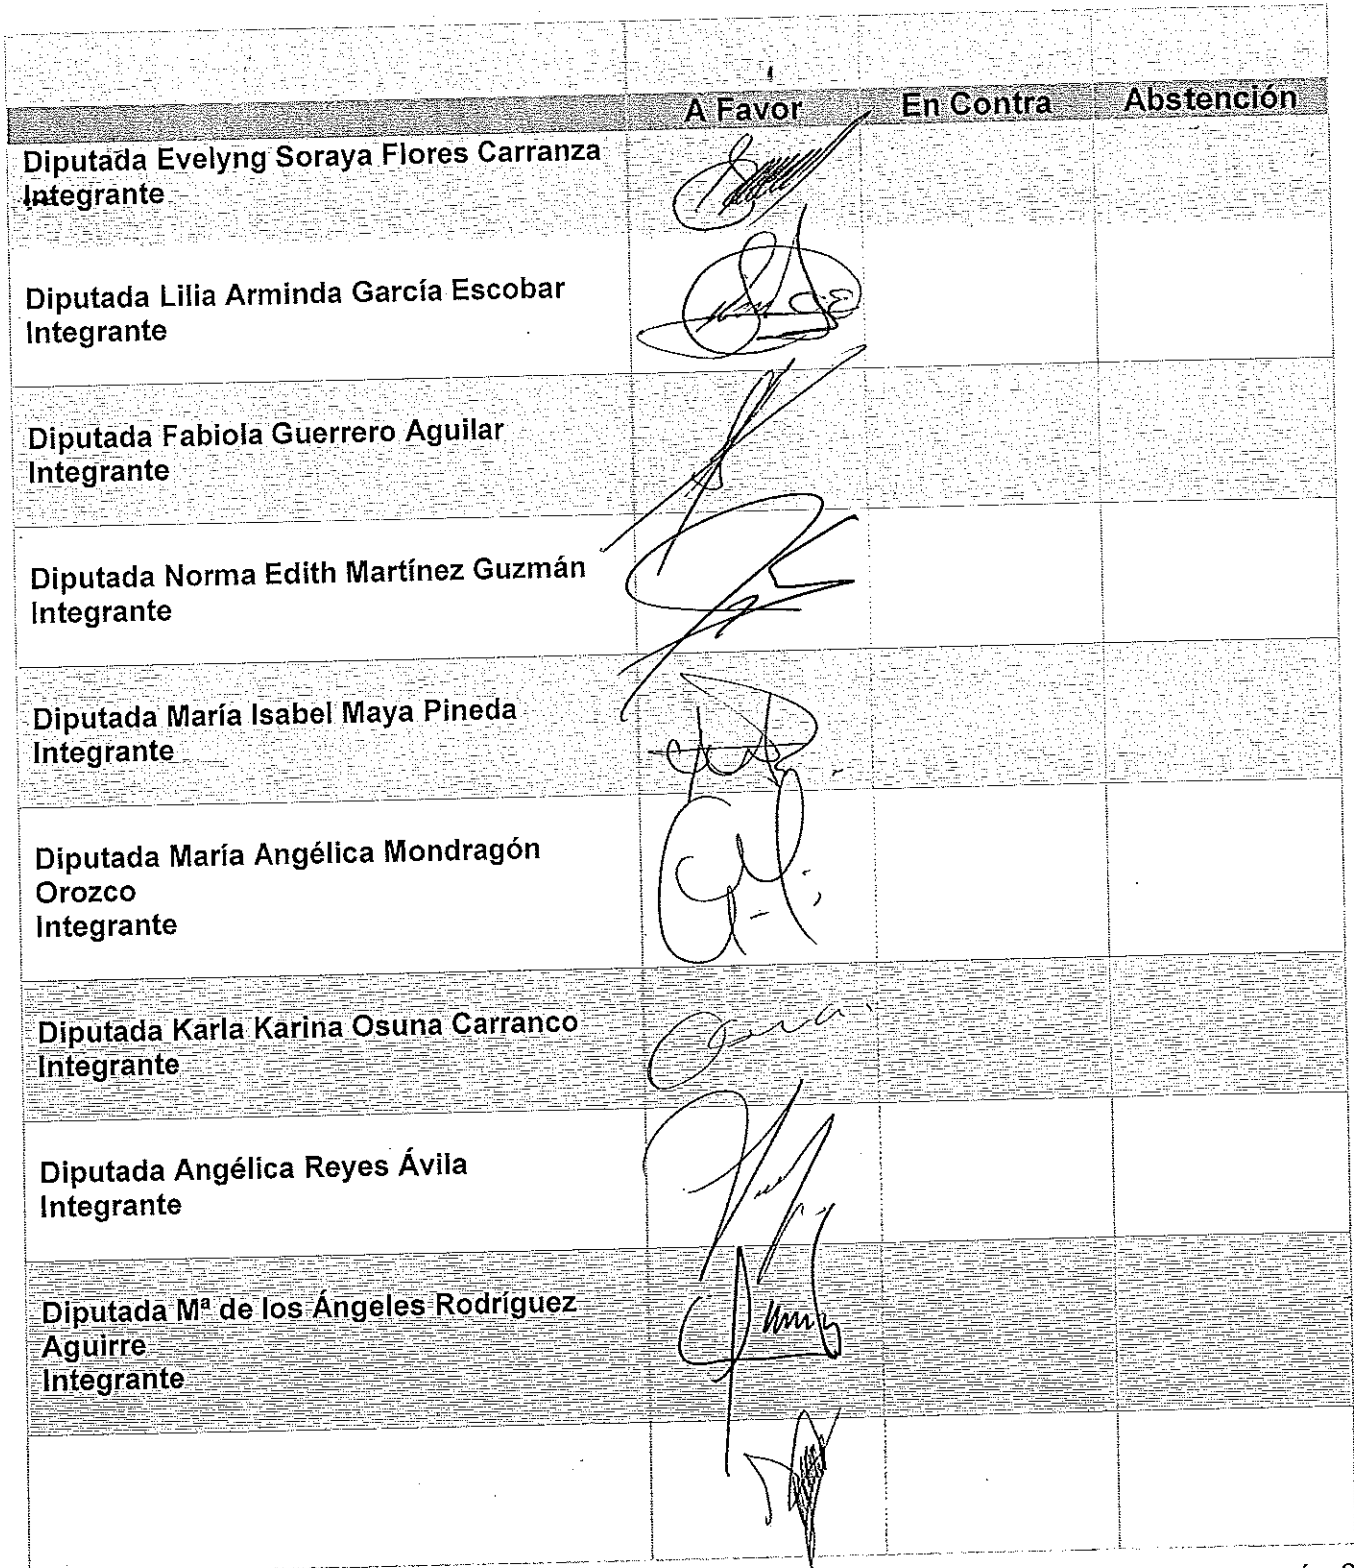 A Favor En Contra Abstención
Diputada Evelyng Soraya Flores Carranza
Integrante
Diputada Lilia Arminda García Escobar
Integrante
Diputada Fabiola Guerrero Aguilar
Integrante
Diputada Norma Edith Martínez Guzmán
Integrante
Diputada María Isabel Maya Pineda
Integrante
Diputada María Angélica Mondragón
Orozco
Integrante
Diputada Karla Karina Osuna Carranco
Integrante
Diputada Angélica Reyes Ávila
Integrante
Diputada Mª de los Ángeles Rodríguez
Aguirre
Integrante